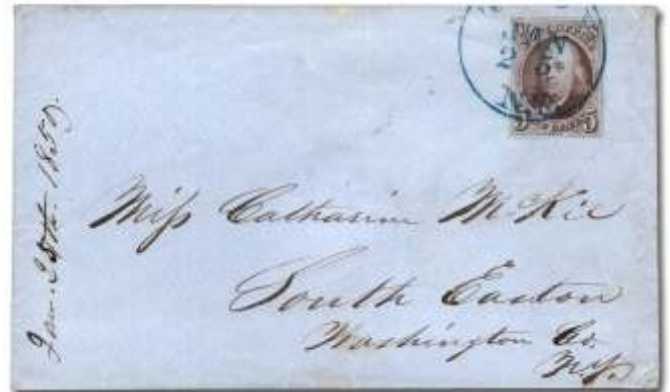 Jan. 25th. 1850.
Miss Catharine McKie
South Easton
Washington Co.
N.Y.
5 5